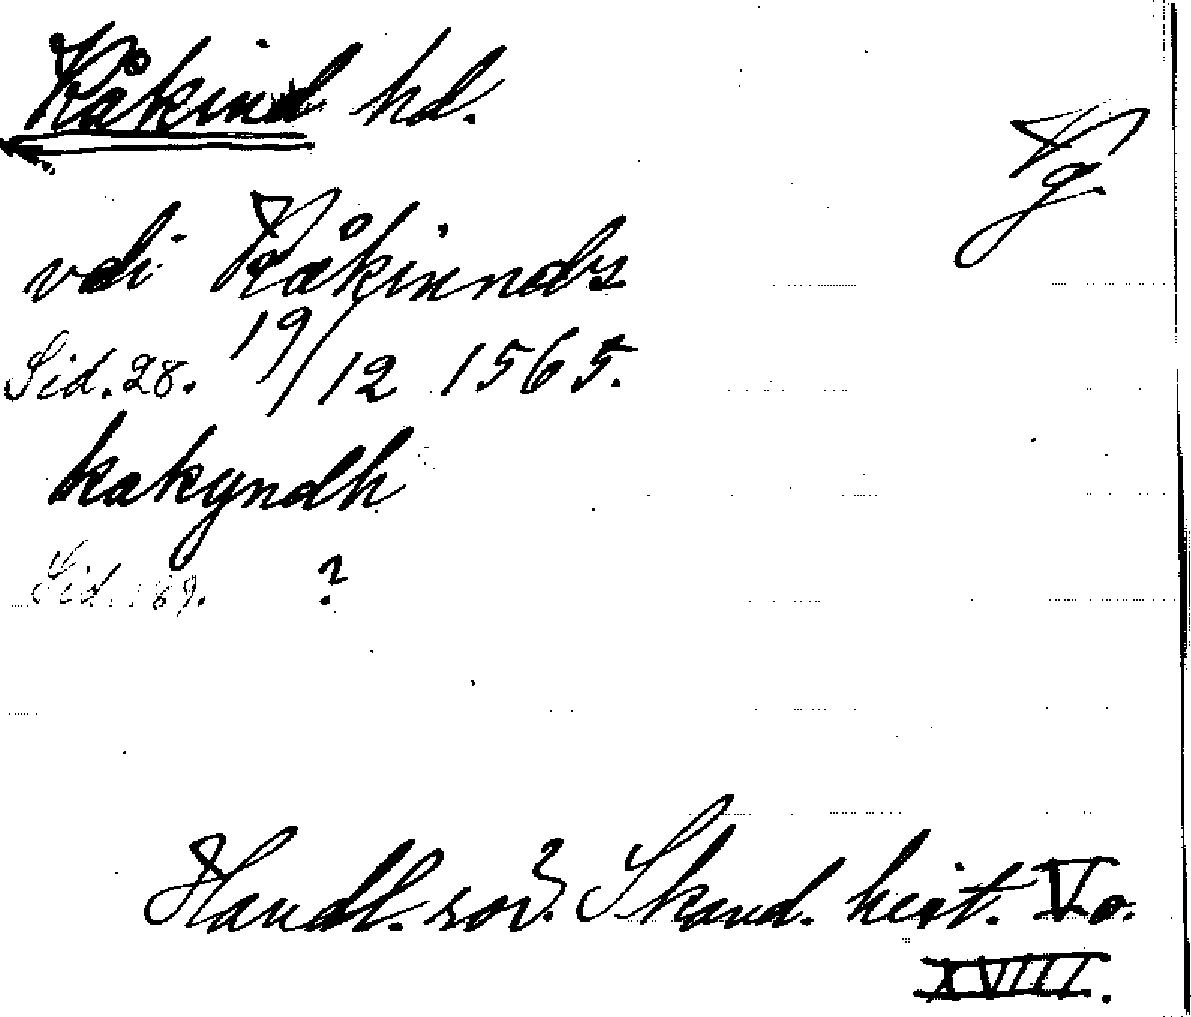 Kåkind hd.
Vg
vdi Kåkinnds
Sid. 28. 19/12 1565.
kakyndh
Sid. 169. ?
Handl. rör. Skand. hist. Vo.
XVIII.